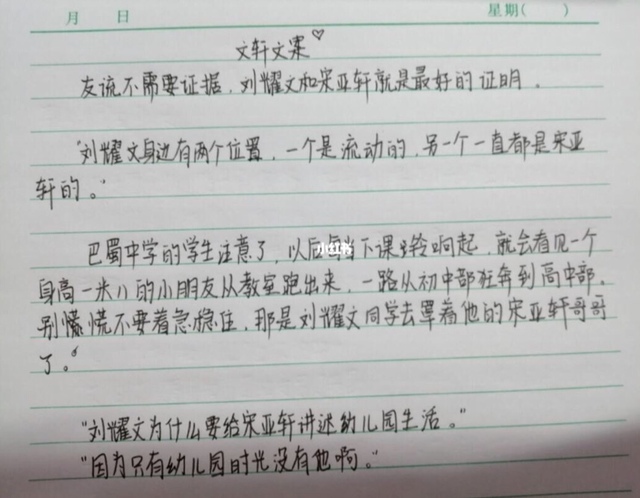 月 日 星期( )
文轩文案♡
友谊不需要证据,刘耀文和宋亚轩就是最好的证明.
"刘耀文身边有两个位置,一个是流动的,另一个一直都是宋亚
轩的。"
巴蜀中学的学生注意了,以后每当下课铃响起,就会看见一个
身高一米八的小朋友从教室跑出来,一路从初中部狂奔到高中部.
别慌慌不要着急稳住,那是刘耀文同学去罩着他的宋亚轩哥哥
了。"
"刘耀文为什么要给宋亚轩讲述幼儿园生活。"
"因为只有幼儿园时光没有他啊。"
小红书